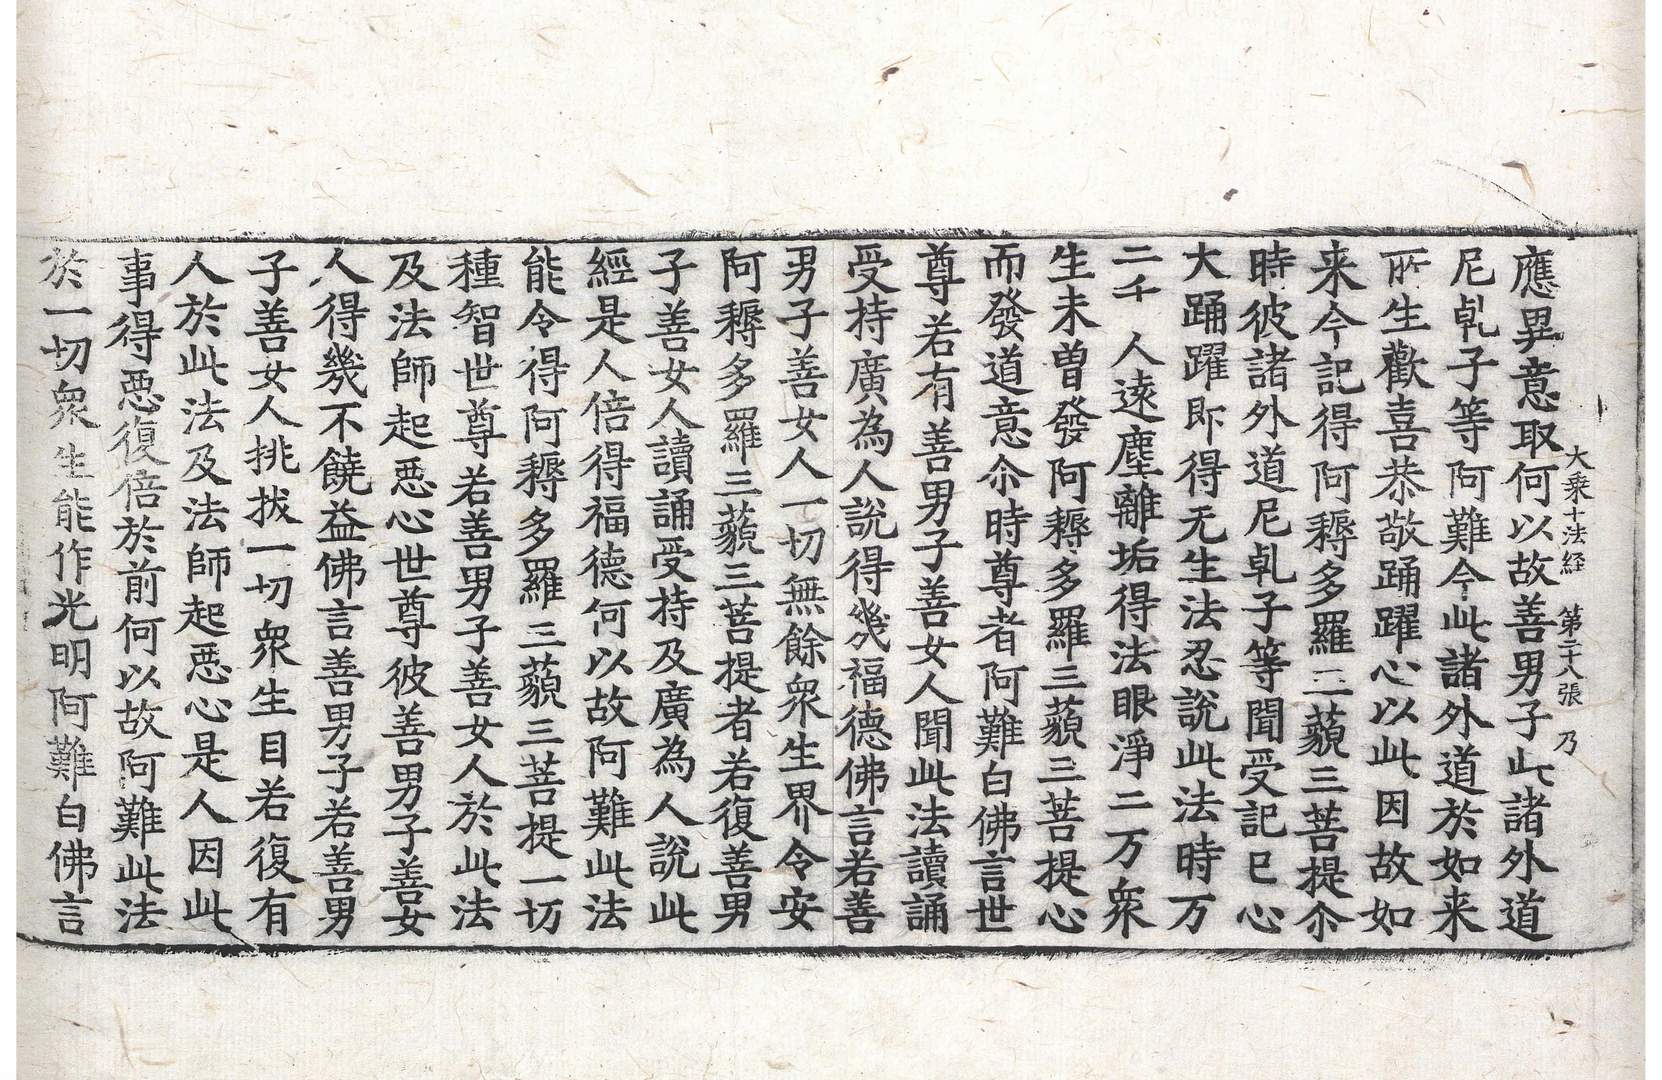 大乗十法経 第二十八張 乃
應異意取何以故善男子此諸外道
尼乹子等阿難今此諸外道於如来
所生歡喜恭敬踊躍心以此因故如
来今記得阿耨多羅三藐三菩提尒
時彼諸外道尼乹子等聞受記已心
大踊躍即得无生法忍說此法時万
二千人遠塵離垢得法眼淨二万衆
生未曽發阿耨多羅三藐三菩提心
而發道意尒時尊者阿難白佛言世
尊若有善男子善女人聞此法讀誦
受持廣為人說得幾福德佛言若善
男子善女人一切無餘衆生界令安
阿耨多羅三藐三菩提者若復善男
子善女人讀誦受持及廣為人說此
經是人倍得福德何以故阿難此法
能令得阿耨多羅三藐三菩提一切
種智世尊若善男子善女人於此法
及法師起惡心世尊彼善男子善女
人得幾不饒益佛言善男子若善男
子善女人挑拔一切衆生目若復有
人於此法及法師起惡心是人因此
事得惡復倍於前何以故阿難此法
於一切衆生能作光明阿難白佛言